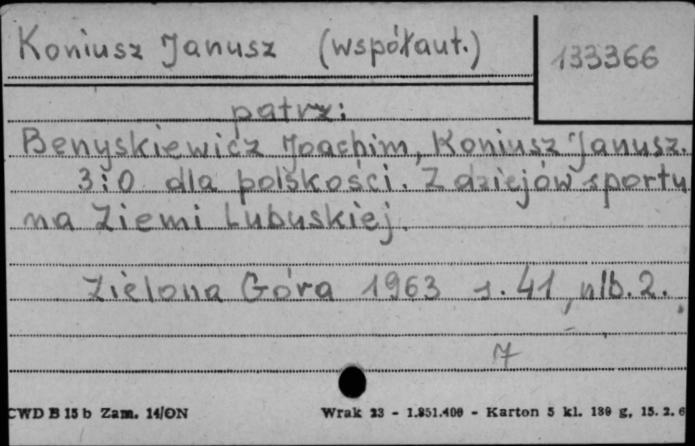 Koniusz Janusz (współaut.)
133366
patrz:
Benyskiewicz Joachim, Koniusz Janusz.
3:0 dla polskości. Z dziejów sportu
na Ziemi Lubuskiej.
Zielona Góra 1963 s. 41, nlb. 2.
7
CWD B 15 b Zam. 14/ON
Wrak 23 - 1.951.400 - Karton 5 kl. 180 g, 15. 2. 6